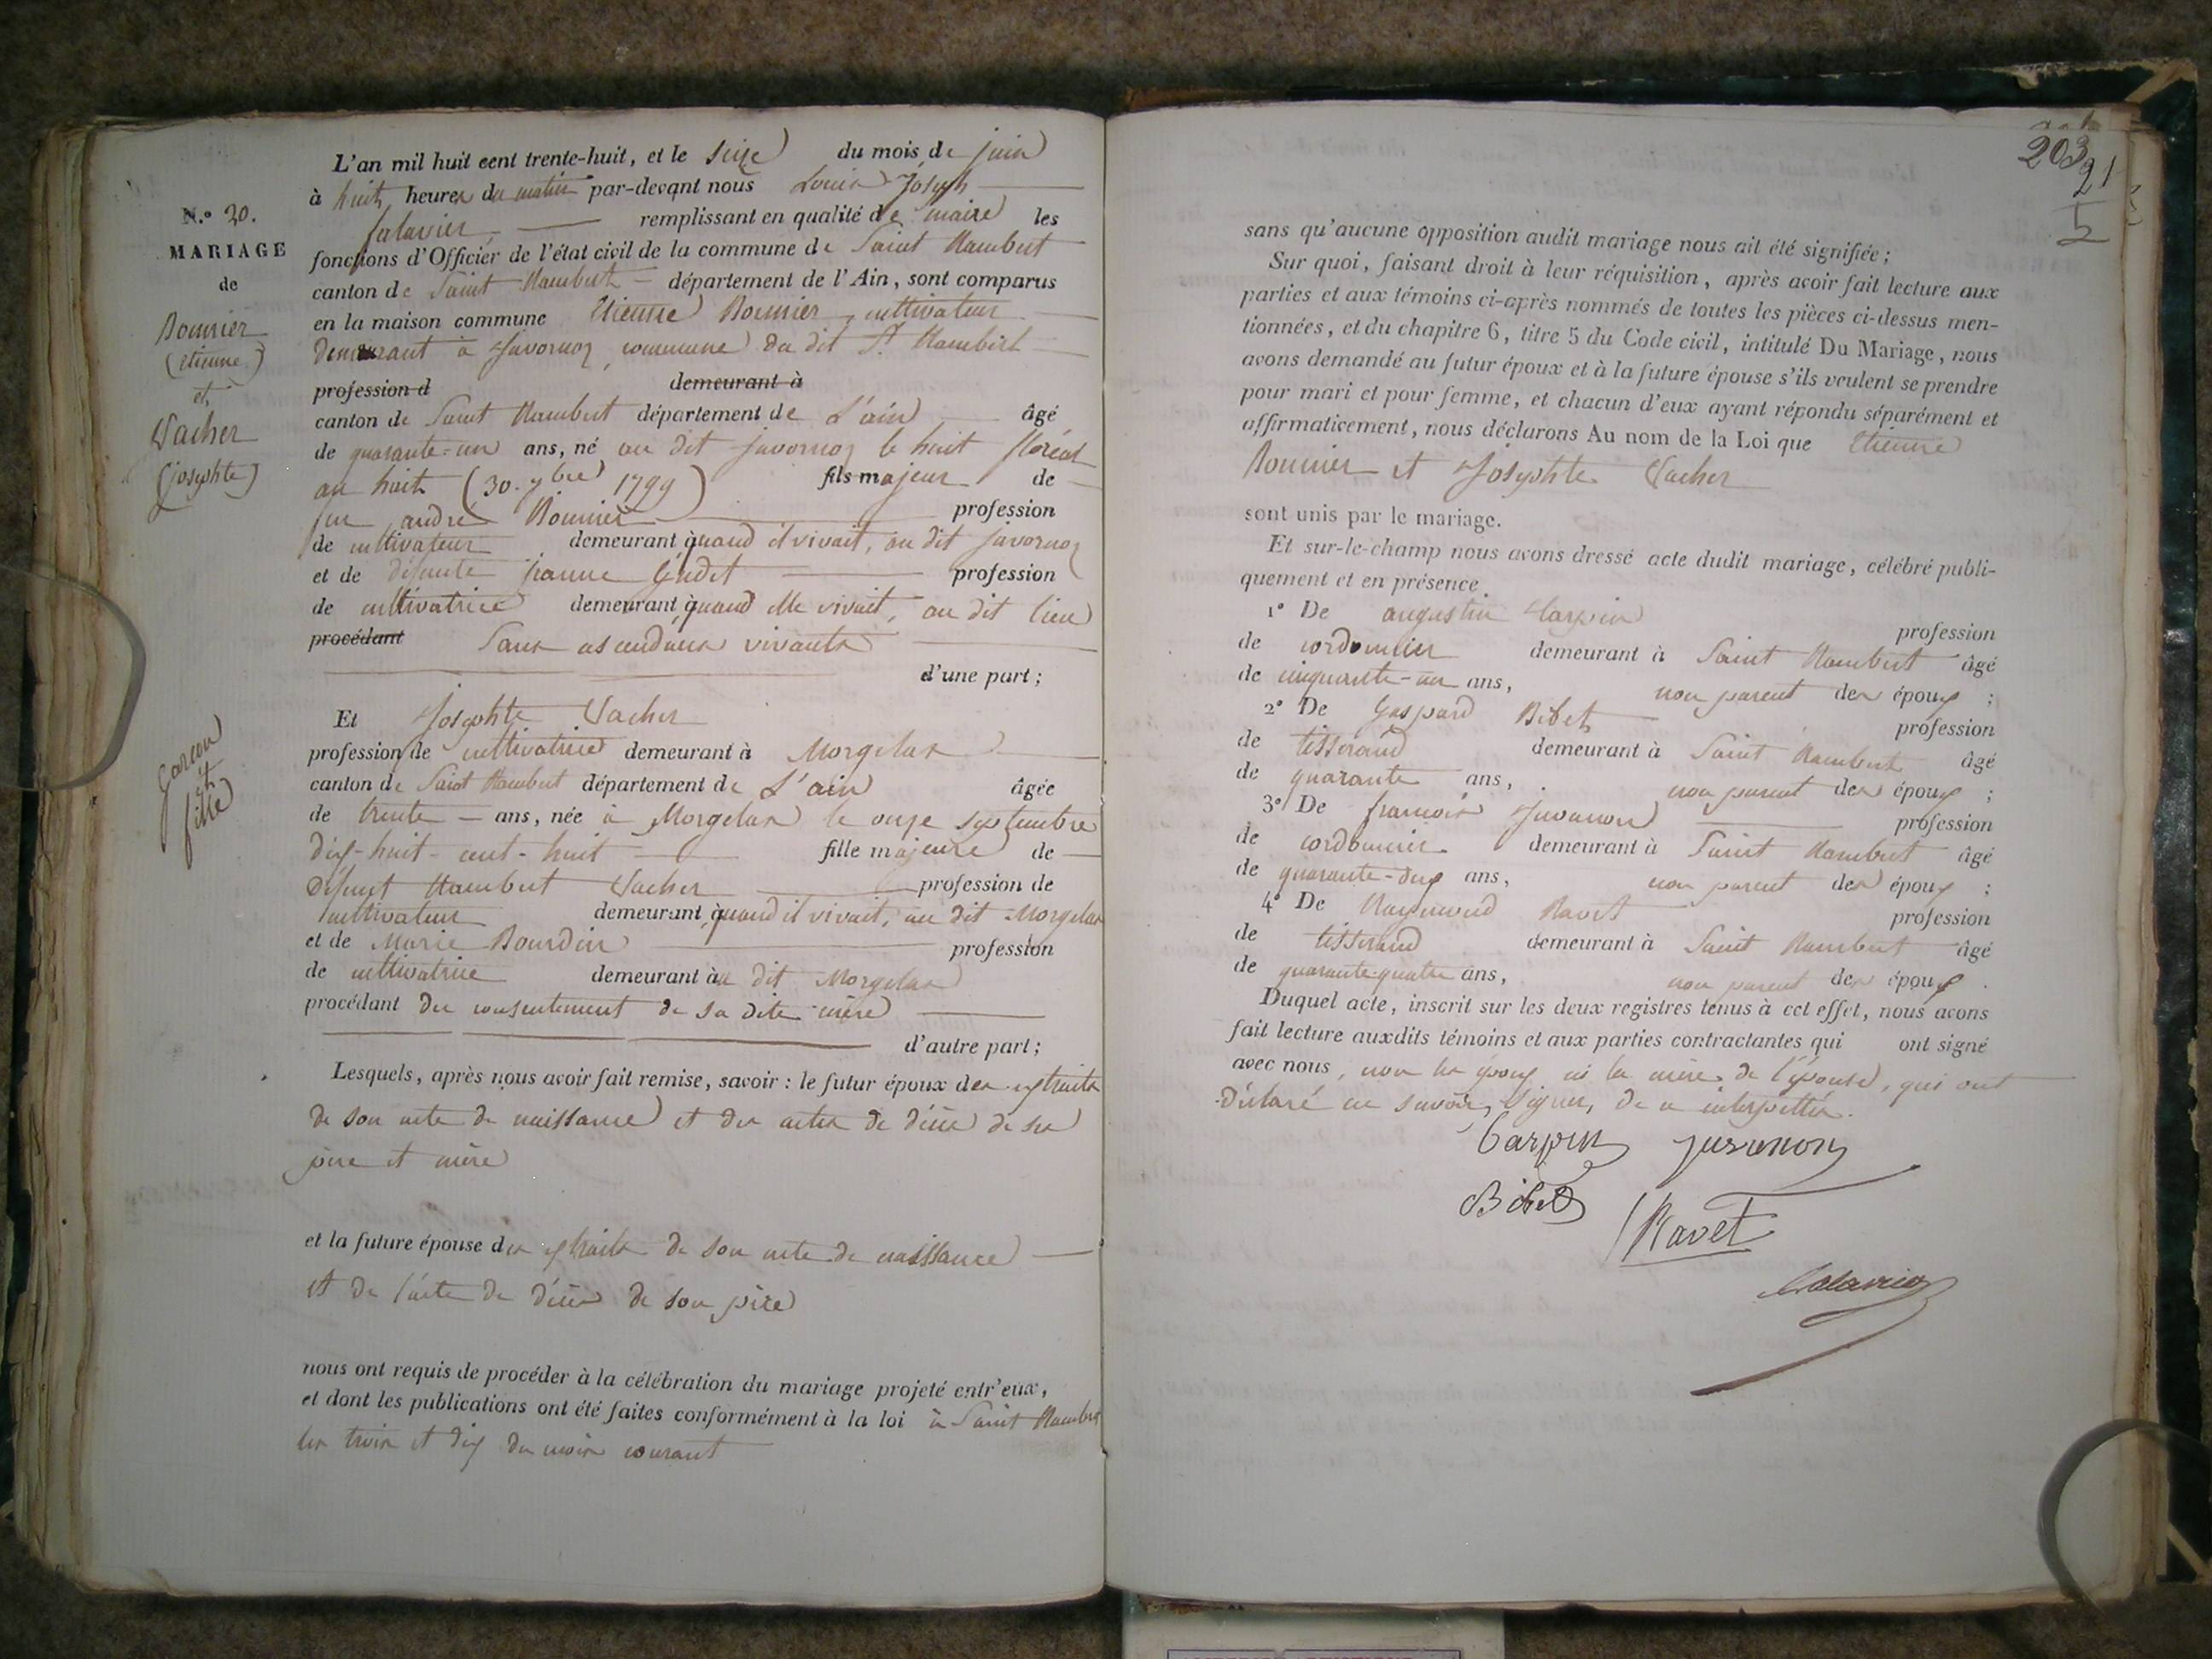 L'an mil huit cent trente-huit, et le seize du mois de juin
à huit heures du matin par-devant nous Louis Joseph
remplissant en qualité de maire les
fonctions d'Officier de l'état civil de la commune de Saint Rambert
N.° 20.
MARIAGE
de
Bonnier
(etienne)
et
Vacher
(josephte)
garcon
et
fille
canton de Saint Rambert département de l'Ain, sont comparus
en la maison commune Etienne Bonnier, cultivateur
demeurant à Javornoz commune du dit St. Rambert
profession d demeurant à
canton de Saint Rambert département de L'ain âgé
de quarante-un ans, né au dit javornoz le huit floréal
an huit (30. 7bre 1799) fils majeur de
feu andré Bonnier profession
de cultivateur demeurant quand il vivait, au dit javornoz
et de défunte jeanne profession
de cultivatrice demeurant quand elle vivait, au dit lieu
procédant Sans ascendans vivants
d'une part;
Et Josephte Vacher
profession de cultivatrice demeurant à Morgelas
canton de Saint Rambert département de L'ain âgée
de trente ans, née à Morgelas le onze septembre
dix-huit-cent-huit fille majeure de
défunt Rambert Vacher profession de
cultivateur demeurant quand il vivait, au dit Morgelas
et de Marie Bourdin profession
de cultivatrice demeurant au dit Morgelas
procédant du consentement de sa dite mère
d'autre part;
Lesquels, après nous avoir fait remise, savoir: le futur époux des extraits
de son acte de naissance et des actes de décès de ses
père et mère
et la future épouse des extraits de son acte de naissance
et de l'acte de décès de son père
nous ont requis de procéder à la célébration du mariage projeté entr'eux,
et dont les publications ont été faites conformément à la loi à Saint Rambert
les trois et dix du mois courant
203
21
5
sans qu'aucune opposition audit mariage nous ait été signifiée;
Sur quoi, faisant droit à leur réquisition, après avoir fait lecture aux
parties et aux témoins ci-après nommés de toutes les pièces ci-dessus men-
tionnées, et du chapitre 6, titre 5 du Code civil, intitulé Du Mariage, nous
avons demandé au futur époux et à la future épouse s'ils veulent se prendre
pour mari et pour femme, et chacun d'eux ayant répondu séparément et
affirmativement, nous déclarons Au nom de la Loi que Etienne
Bonnier et Josephte Vacher
sont unis par le mariage.
Et sur-le-champ nous avons dressé acte dudit mariage, célébré publi-
quement et en présence
1° De augustin Carpin profession
de cordonnier demeurant à Saint Rambert âgé
de cinquante-un ans, non parent des époux;
2° De Gaspard Bibet profession
de tisserand demeurant à Saint Rambert âgé
de quarante ans, non parent des époux;
3° De francois Juvanon profession
de cordonnier demeurant à Saint Rambert âgé
de quarante-deux ans, non parent des époux;
4° De Raymond Ravet profession
de tisserand demeurant à Saint Rambert âgé
de quarante-quatre ans, non parent des époux.
Duquel acte, inscrit sur les deux registres tenus à cet effet, nous avons
fait lecture auxdits témoins et aux parties contractantes qui ont signé
avec nous, non les époux ni la mère de l'épouse, qui ont
déclaré ne savoir signer, de ce interpellés.
Carpin Juvanon
Bibet
Ravet